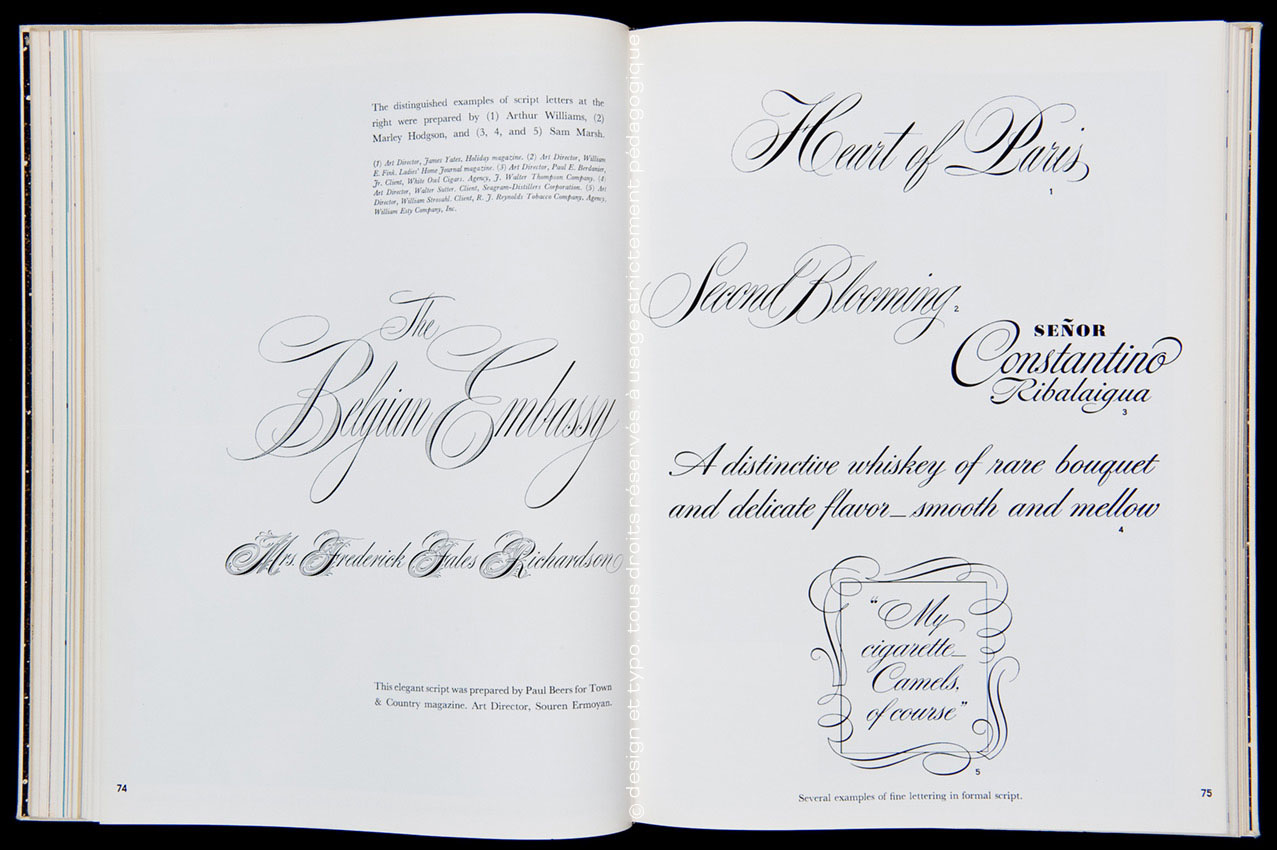 The distinguished examples of script letters at the
right were prepared by (1) Arthur Williams, (2)
Marley Hodgson, and (3, 4, and 5) Sam Marsh.
(1) Art Director, James Yates. Holiday magazine. (2) Art Director, William
E. Fink. Ladies' Home Journal magazine. (3) Art Director, Paul E. Berdanier,
Jr. Client, White Owl Cigars. Agency, J. Walter Thompson Company. (4)
Art Director, Walter Sutter. Client, Seagram-Distillers Corporation. (5) Art
Director, William Strosahl. Client, R. J. Reynolds Tobacco Company, Agency,
William Esty Company, Inc.
The
Belgian Embassy
Mrs. Frederick Fales Richardson
This elegant script was prepared by Paul Beers for Town
& Country magazine. Art Director, Souren Ermoyan.
74
© design et typo. tous droits réservés. à usage strictement pédagogique
Heart of Paris
1
Second Blooming
2
SEÑOR
Constantino
Ribalaigua
3
A distinctive whiskey of rare bouquet
and delicate flavor_smooth and mellow
4
"My
cigarette_
Camels,
of course"
5
Several examples of fine lettering in formal script.
75